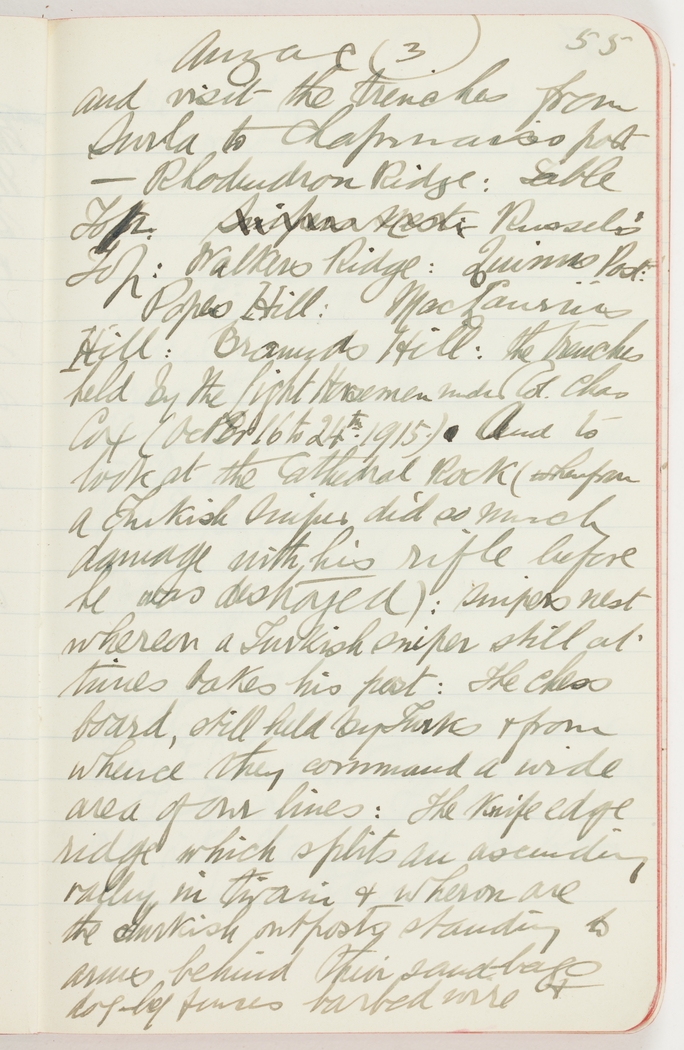 Anzac (3) 55
and visit the trenches from
Suvla to Chapmans post
— Rhodendron Ridge: Table
Top. Snipers nest: Russels
Top: Walkers Ridge: Quinns Post:
Popes Hill: MacLaurins
Hill: Braunds Hill: the trenches
held by the light Horsemen under Col. Chas
Cox (October 16 to 24th. 1915). And to
look at the Cathedral Rock (wherefrom
a Turkish sniper did so much
damage with his rifle before
he was destroyed): snipers nest
whereon a Turkish sniper still at
times takes his post: The chess
board, still held by Turks & from
whence they command a wide
area of our lines: The Knife edge
ridge which splits an ascending
valley in twain & wheron are
the Turkish outposts standing to
arms behind their sand bags
dog-leg fences barbed wire &